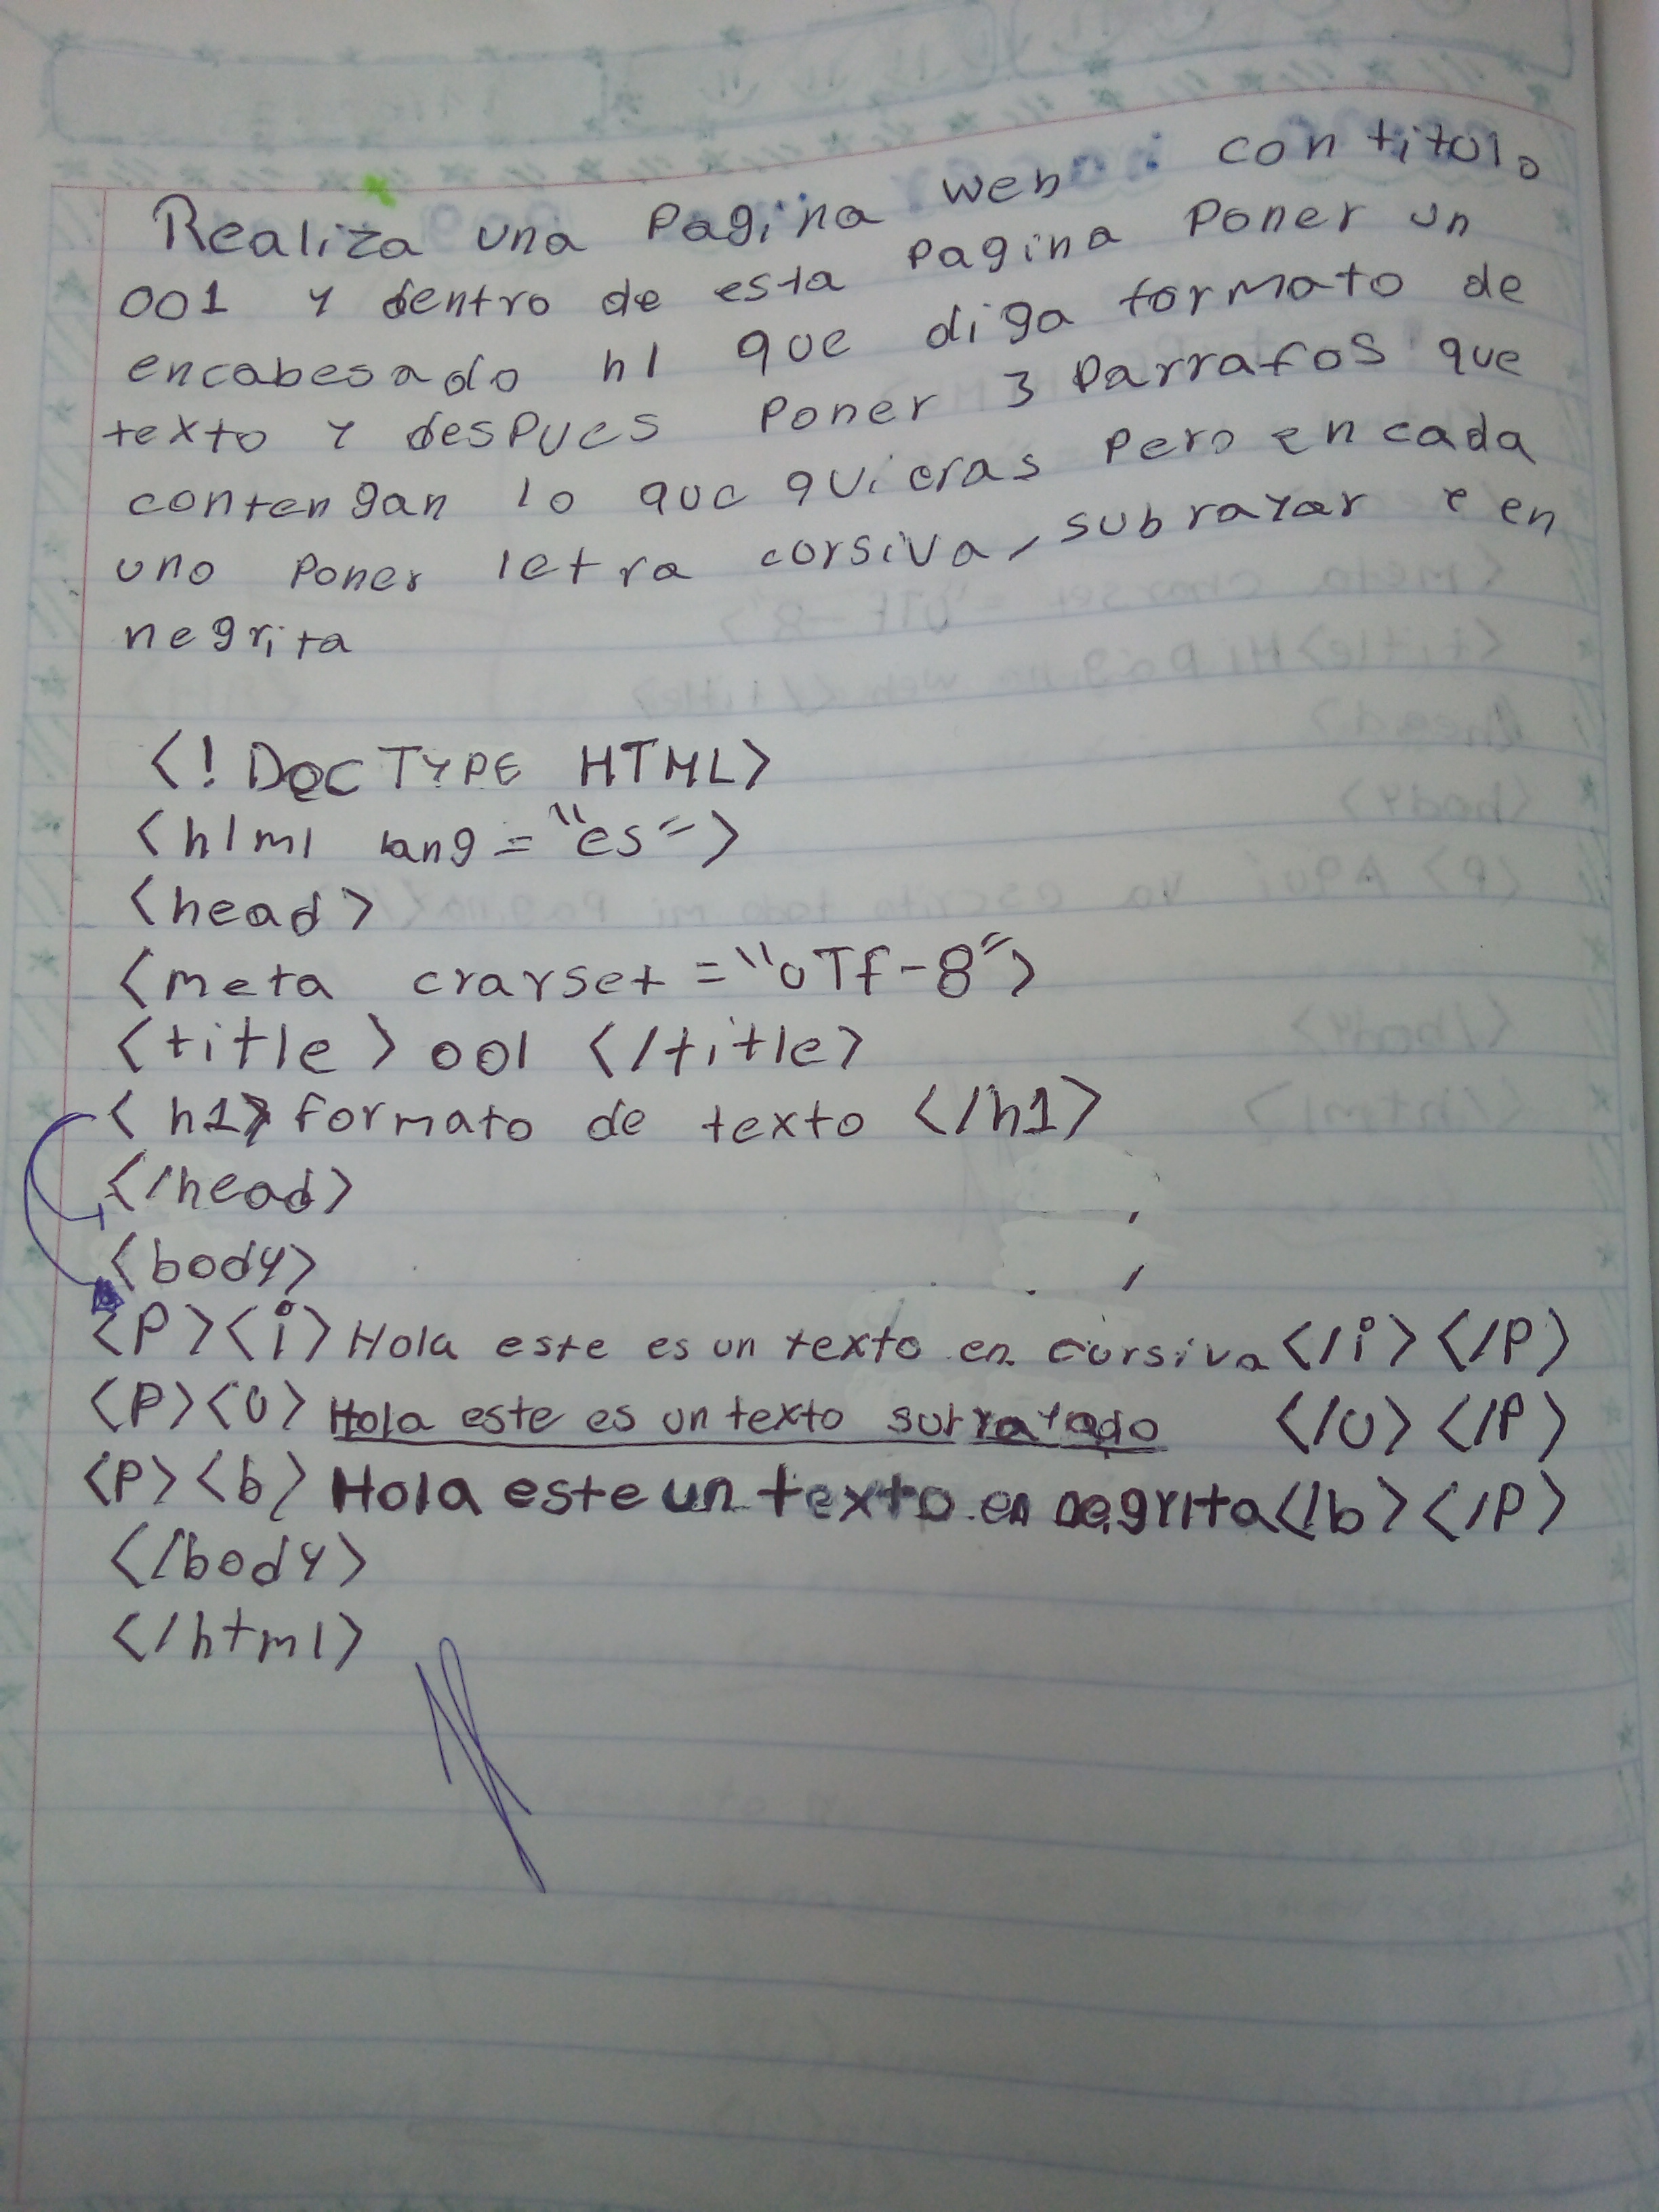 Realiza una Pagina web con titulo
001 y dentro de esta pagina Poner un
encabesado h1 que diga formato de
texto y despues Poner 3 Parrafos que
contengan lo que quieras Pero en cada
uno Poner letra corsiva, subrayar e en
negrita
<! DOCTYPE HTML>
<hlml lang = "es">
<head>
<meta crarset = "UTf-8">
<title> 001 </title>
< h1> formato de texto </h1>
</head>
<body>
<P><i> Hola este es un texto en cursiva </i></P>
<P><U> Hola este es un texto subrayado </U></P>
<P><b> Hola este un texto en negrita </b></P>
</body>
</html>